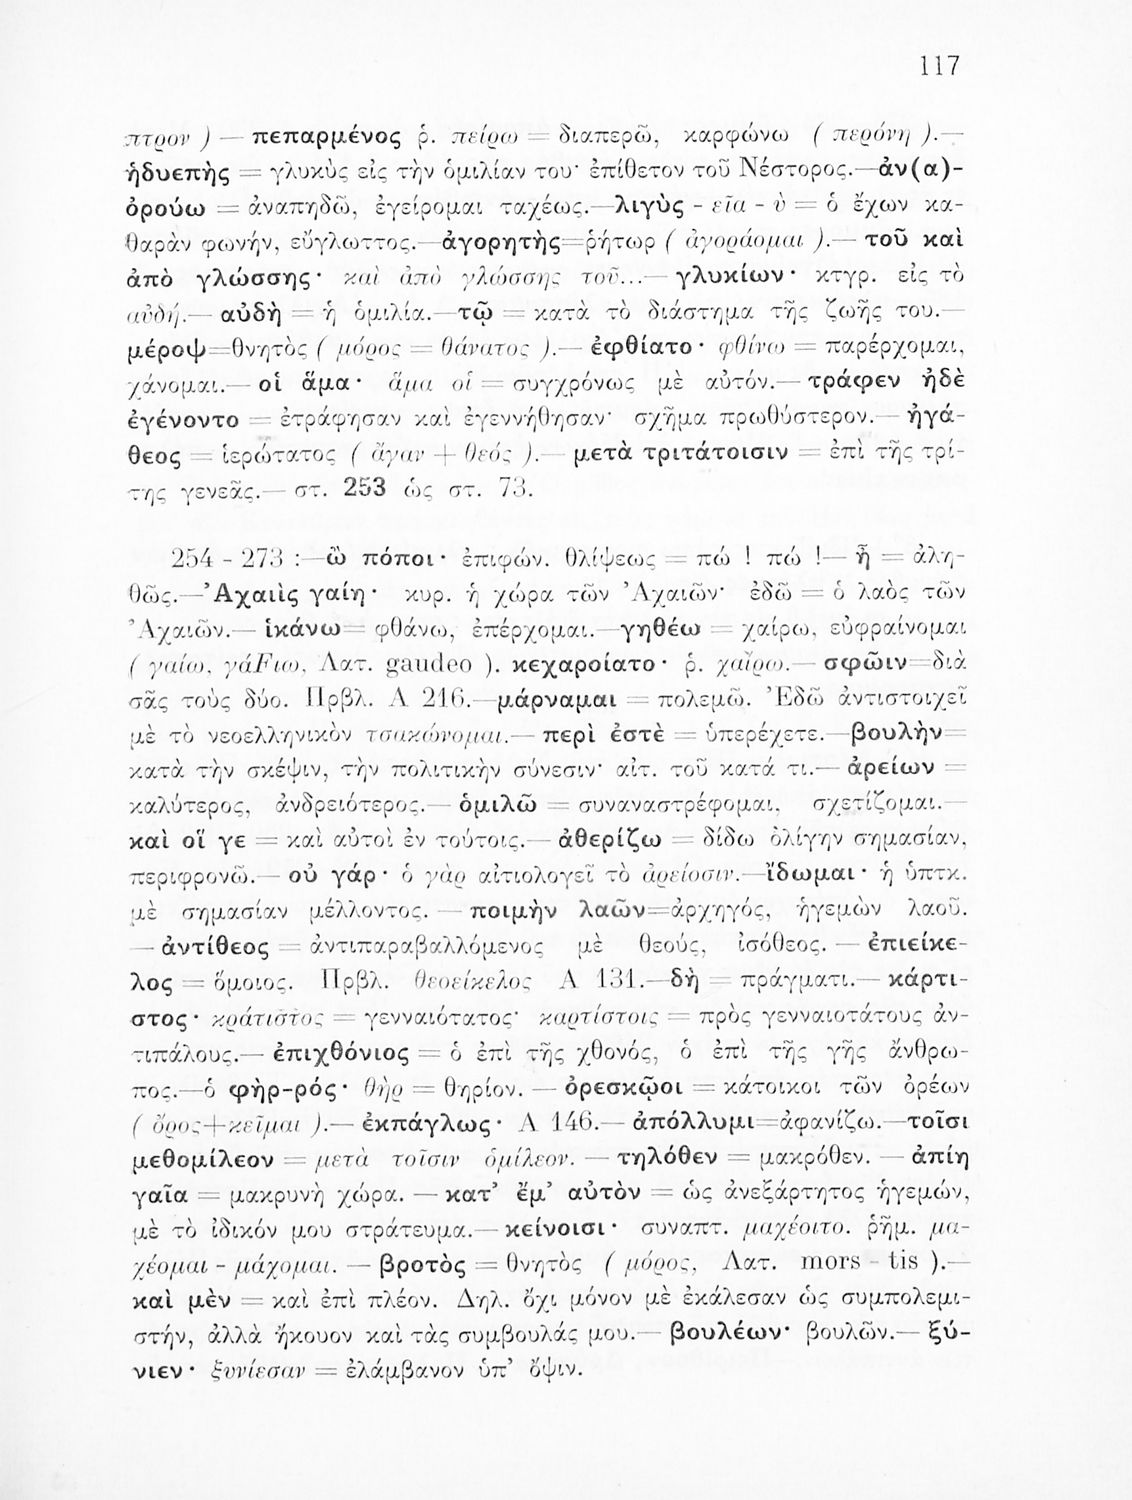 117
πτρον ) — πεπαρμένος ῥ. πείρω = διαπερῶ, καρφώνω ( περόνη ).—
ἡδυεπὴς = γλυκὺς εἰς τὴν ὁμιλίαν του· ἐπίθετον τοῦ Νέστορος.—ἀν(α)-
ορούω = ἀναπηδῶ, ἐγείρομαι ταχέως.—λιγὺς - εῖα - ὺ = ὁ ἔχων κα-
θαρὰν φωνήν, εὔγλωττος.—ἀγορητὴς=ῥήτωρ ( ἀγοράομαι ).— τοῦ καὶ
ἀπὸ γλώσσης· καὶ ἀπὸ γλώσσης τοῦ...— γλυκίων· κτγρ. εἰς τὸ
αὐδή.— αὐδὴ = ἡ ὁμιλία.—τῷ = κατὰ τὸ διάστημα τῆς ζωῆς του.—
μέροψ=θνητὸς ( μόρος = θάνατος ).— ἐφθίατο· φθίνω = παρέρχομαι,
χάνομαι.— οἱ ἅμα· ἅμα οἱ = συγχρόνως μὲ αὐτόν.— τράφεν ἠδὲ
ἐγένοντο = ἐτράφησαν καὶ ἐγεννήθησαν· σχῆμα πρωθύστερον.— ἠγά-
θεος = ἱερώτατος ( ἄγαν + θεός ).— μετὰ τριτάτοισιν = ἐπὶ τῆς τρί-
της γενεᾶς.— στ. 253 ὡς στ. 73.
254 - 273 :—ὢ πόποι· ἐπιφών. θλίψεως = πώ ! πώ !— ἦ = ἀλη-
θῶς.—Ἀχαιὶς γαίη· κυρ. ἡ χώρα τῶν Ἀχαιῶν· ἐδῶ = ὁ λαὸς τῶν
Ἀχαιῶν.— ἱκάνω= φθάνω, ἐπέρχομαι.—γηθέω = χαίρω, εὐφραίνομαι
( γαίω, γάFιω, Λατ. gaudeo ). κεχαροίατο· ῥ. χαίρω.— σφῶιν=διὰ
σᾶς τοὺς δύο. Πρβλ. Α 216.—μάρναμαι = πολεμῶ. Ἐδῶ ἀντιστοιχεῖ
μὲ τὸ νεοελληνικὸν τσακώνομαι.— περὶ ἐστὲ = ὑπερέχετε.—βουλὴν=
κατὰ τὴν σκέψιν, τὴν πολιτικὴν σύνεσιν· αἰτ. τοῦ κατά τι.— ἀρείων =
καλύτερος, ἀνδρειότερος.— ὁμιλῶ = συναναστρέφομαι, σχετίζομαι.—
καὶ οἵ γε = καὶ αὐτοὶ ἐν τούτοις.— ἀθερίζω = δίδω ὀλίγην σημασίαν,
περιφρονῶ.— οὐ γάρ· ὁ γὰρ αἰτιολογεῖ τὸ ἀρείοσιν.—ἴδωμαι· ἡ ὑπτκ.
μὲ σημασίαν μέλλοντος. — ποιμὴν λαῶν=ἀρχηγός, ἡγεμὼν λαοῦ.
— ἀντίθεος = ἀντιπαραβαλλόμενος μὲ θεούς, ἰσόθεος. — ἐπιείκε-
λος = ὅμοιος. Πρβλ. θεοείκελος Α 131.—δὴ = πράγματι.— κάρτι-
στος· κράτιστος = γενναιότατος· καρτίστοις = πρὸς γενναιοτάτους ἀν-
τιπάλους.— ἐπιχθόνιος = ὁ ἐπὶ τῆς χθονός, ὁ ἐπὶ τῆς γῆς ἄνθρω-
πος.—ὁ φὴρ-ρός· θὴρ = θηρίον. — ὀρεσκῷοι = κάτοικοι τῶν ὀρέων
( ὄρος+κεῖμαι ).— ἐκπάγλως· Α 146.— ἀπόλλυμι=ἀφανίζω.—τοῖσι
μεθομίλεον = μετὰ τοῖσιν ὁμίλεον. — τηλόθεν = μακρόθεν. — ἀπίη
γαῖα = μακρυνὴ χώρα. — κατ’ ἔμ’ αὐτὸν = ὡς ἀνεξάρτητος ἡγεμών,
μὲ τὸ ἰδικόν μου στράτευμα.— κείνοισι· συναπτ. μαχέοιτο. ῥῆμ. μα-
χέομαι - μάχομαι. — βροτὸς = θνητὸς ( μόρος, Λατ. mors - tis ).—
καὶ μὲν = καὶ ἐπὶ πλέον. Δηλ. ὄχι μόνον μὲ ἐκάλεσαν ὡς συμπολεμι-
στήν, ἀλλὰ ἤκουον καὶ τὰς συμβουλάς μου.— βουλέων· βουλῶν.— ξύ-
νιεν· ξυνίεσαν = ἐλάμβανον ὑπ’ ὄψιν.